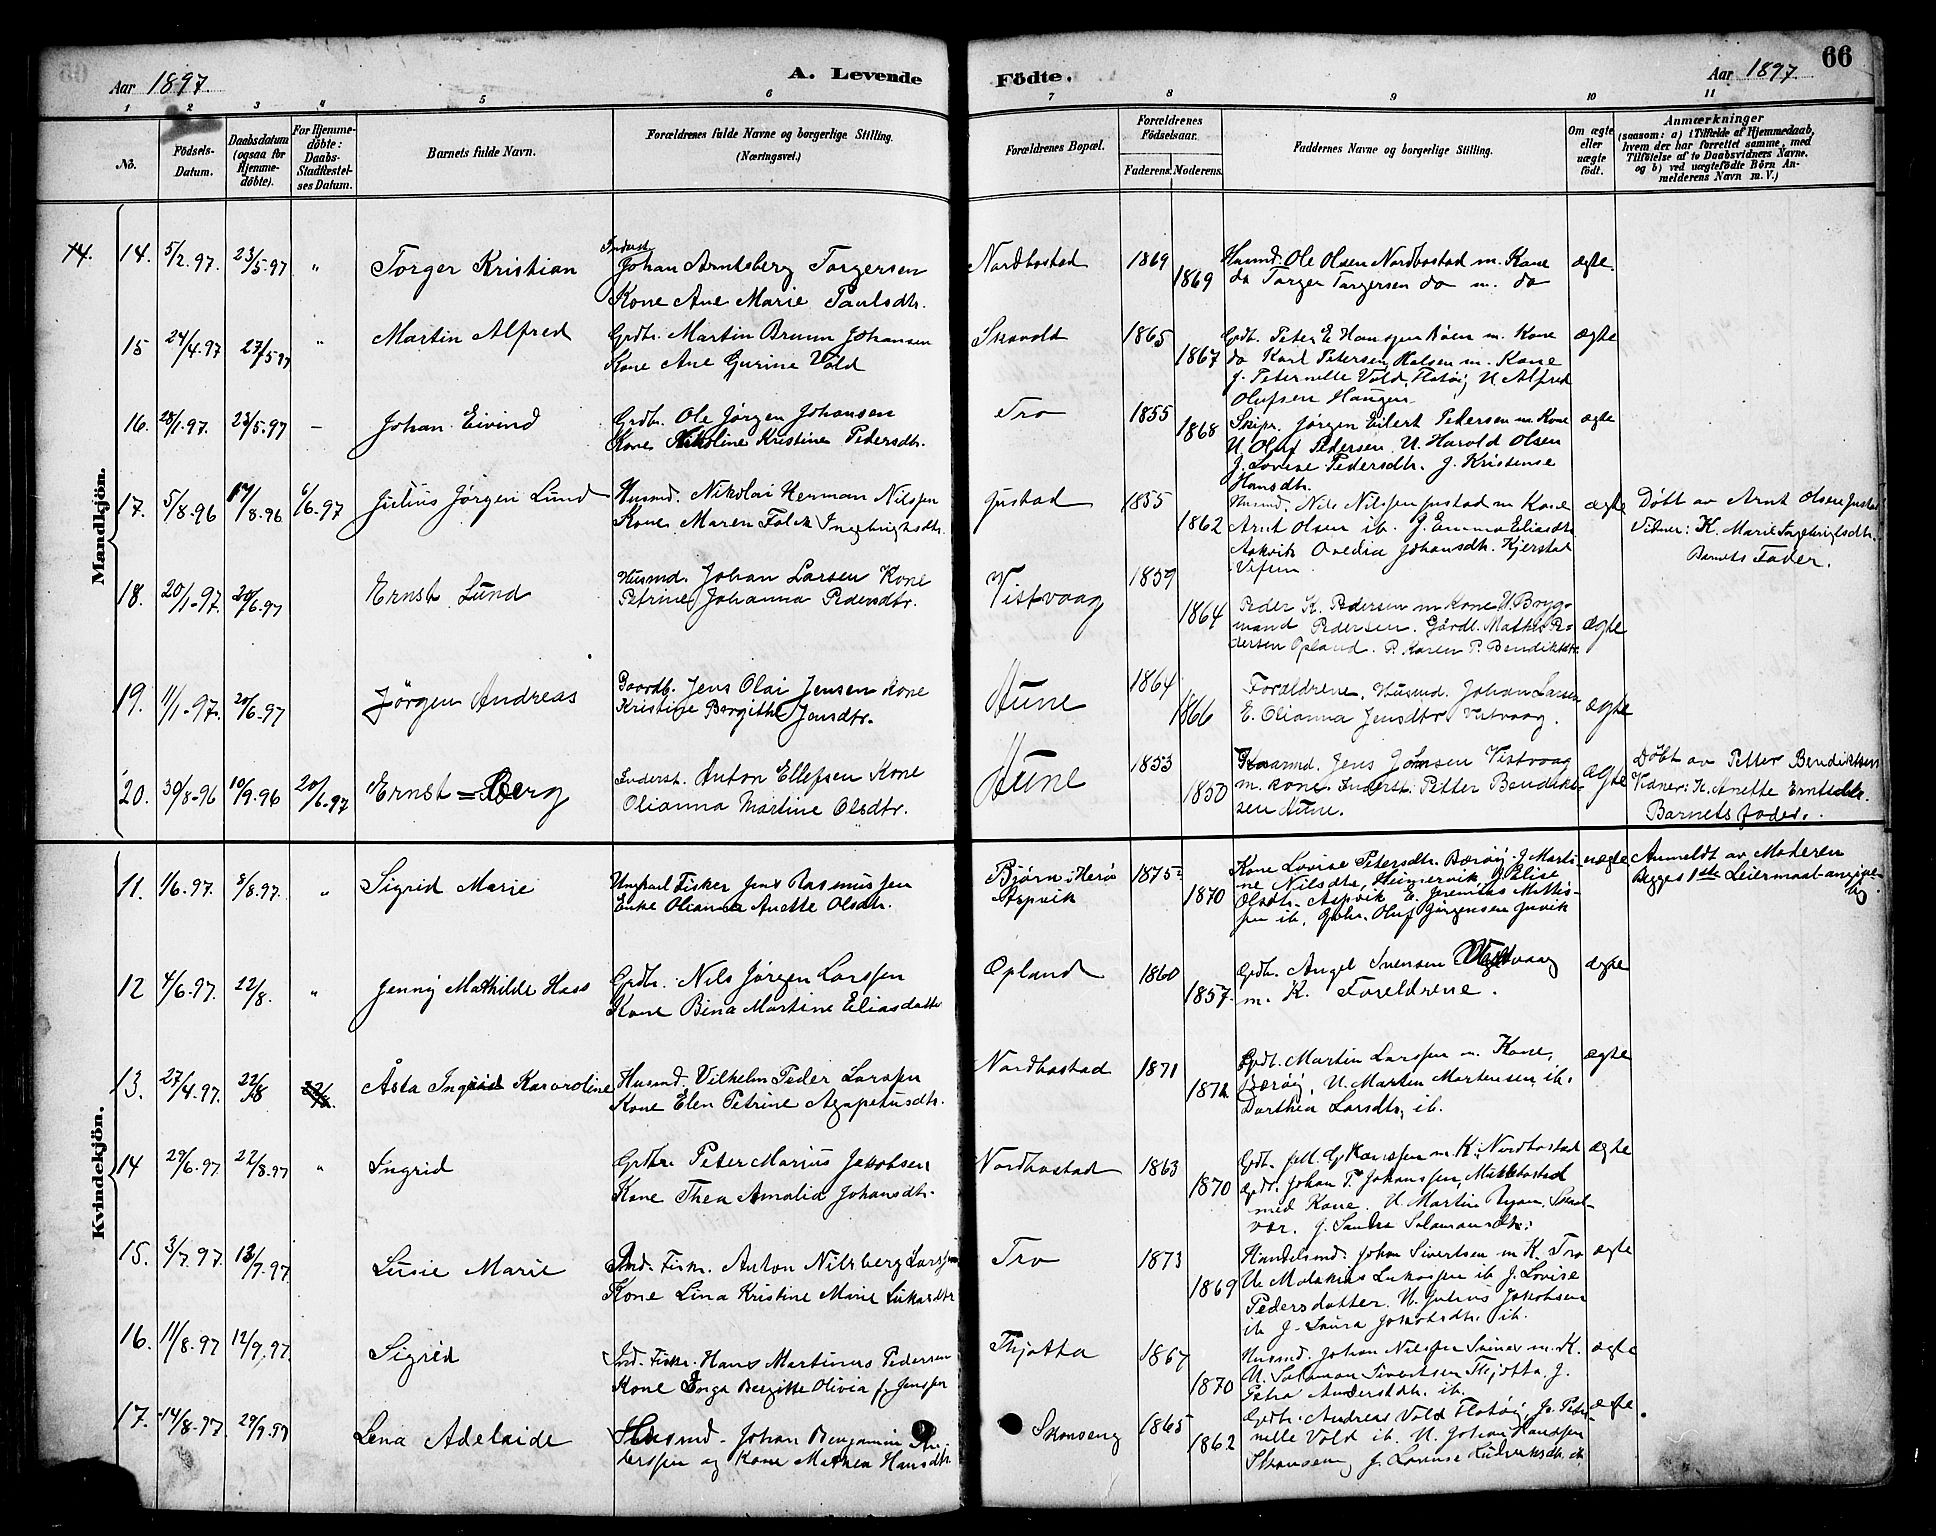 66
Aar 1897.
A. Levende
Födte.
Aar 1897.
1 2 3 4 5 6 7 8 9 10 11
No.
Födsels-Datum.
Daabsdatum (ogsaa for Hjemmedöbte).
For Hjemmedöbte: Daabs-Stadfæstelses Datum.
Barnets fulde Navn.
Forældrenes fulde Navne og borgerlige Stilling.
(Næringsvei.)
Forældrenes Bopæl.
Forældrenes Födselsaar.
Faderens. Moderens.
Faddernes Navne og borgerlige Stilling.
Om ægte eller uægte födt.
Anmærkninger
(saasom: a) i Tilfælde af Hjemmedaab, hvem der har forrettet samme, med Tilföielse af to Daabsvidners Navne, og b) ved uægtefödte Börn Anmelderens Navn m. V.)
Mandkjön.
14. 14. 5/2.97. 23/5.97 " Torger Kristian
Inderst Johan Arntsberg Torgersen
Kone Ane Marie Paulsdtr.
Nordbostad 1869 1869
Husmd. Ole Olsen Nordbostad m. Kone
do Torger Torgersen do m. do
ægte.
15 24/4.97 27/5.97 " Martin Alfred
Grdbr. Martin Bruun Johansen
Kone Ane Gurine Vold
1865 1867
Grdb. Peter E Hansen m. Kone
do Karl Petersen Halsen m. Kone
J. Peternelle Vold, Flotöig U Alfred
Olufsen Haugen
ægte
16. 28/1.97. 23/5.97 – Johan Eivind
Grdb. Ole Jörgen Johansen
Kone Nikoline Kristine Pedersdtr.
Tro 1855 1868
Skipr. Jörgen Eilert Pedersen m. Kone
U. Oluf Pedersen. U. Harold Olsen
J. Lovise Pedersdtr. J. Kristense
Hansdtr.
ægte
17. 5/8.96 17/8.96 6/6.97 Julius Jörgen Lund
Husmd. Nikolai Herman Nilssen
Kone Maren Falch Ingebrigtsdtr.
Gustad 1855 1862
Husmd. Nils Nilssen Gustad m Kone
Arnt Olsen ib. J. Emma Eliasdtr
Aakvik Ovedia Johansdtr. Kjerstad
Vefsn.
ægte
Döbt av Arnt Olsen Gustad
Vidner: K. Marie Ingebrigtsdtr.
Barnets Fader.
18. 20/1.97. 20/6.97 Ernst Lund
Husmd. Johan Larsen Kone
Petrine Johanna Pedersdtr.
Vistvaag 1859 1864
Peder K. Pedersen m Kone U. Bryg-
mand Pedersen. Gårdb. Mathis Pe-
dersen Opland. P. Karen P. Bendiktsdtr
ægte
19. 11/1.97. 20/6.97 Jörgen Andreas
Gaardb. Jens Olai Jensen Kone
Kristine Bergithe Jensdtr.
Hune 1864 1866
Forældrene, Husmd. Johan Larsen
E. Olianna Jensdtr Vistvaag.
ægte
20. 30/8.96 10/9.96 20/6.97 Ernst Berg
Inderst. Anton Ellefsen Kone
Olianna Martine Olsdtr.
Hune 1853 1850
Jens Jensen Vistvaag
m. Kone. Inderst: Petter Bendikt-
sen Hune.
ægte
Döbt av Petter Bendiktsen
Vidner: K. Anette Erntsdtr.
Barnets fader.
Kvindekjön.
11. 1/6.97. 8/8.97. " Sigrid Marie
Ungkarl Fisker Jens Rasmussen
Enke Olianna Anette Olsdtr.
Björn i Herö
Aspvik
1875 1870
Kone Lovise Petersdtr. Bærøig J. Marti-
ne Nilsdtr, Heimervik J. Elise
Olsdtr. Aspvik E. Jeremias Mattis-
sen ib. Grdbr. Oluf Jörgensen
uægte
Anmeldt av Moderen
Begges 1ste Leiermaal angivelig
12 4/6.97. 22/8. " Jenny Mathilde Hass
Grdbr. Nils Jörgen Larssen
Kone Bina Martine Eliasdatter
Opland 1860 1857.
Grdb. Angel Svensen Vistvaag
m. K. Foreldrene.
ægte
13. 27/4.97. 22/8 Åsta Ingrid Karoroline
Husmd. Vilhelm Peder Larssen
Kone Elen Petrine Agapetusdtr.
Nordbostad 1871 1872
Grdb. Martin Larssen m. Kone,
Bærøig, U. Morten Mortensen ib.
Dorthea Larsdtr, ib.
ægte
14 29/6.97 22/8.97 " Ingrid
Grdbr. Peter Marius Jakobsen
Kone Thea Amalia Johansdtr.
Nordbostad 1863 1870
Grdb. m K. Nordbostad
Grdb. Johan P. Johanssen, Mikkelbostad
med Kone. U. Martin
vær. J. Sandra Salamonsdtr.
ægte
15. 3/7.97. 13/7.97 Lusie Marie
Ind. Fiskr. Anton Nilsberg Larssen
Kone Lina Kristine Marie Lukasdtr
Tro 1873 1869
Handelsmd. Johan Sivertsen m K. Tro
U. Malakias Lukassen ib J. Lovise
Pedersdatter. U. Julius Jakobsen
ib J. Laura Jakobsdtr. ib.
ægte
16. 11/8.97 12/9.97. Sigrid
Ind. Fiskr. Hans Martinus Pedersen
Kone Inga Bergitte Olivia f. Jenssen
Thjotta 1867 1870
Husmd. Johan Nilssen m. K.
U. Salamon Sivertsen Thjotta J.
Petra Andersdtr. ib.
ægte
17. 14/8.97 29/9.97 Lena Adelaide
Husmd. Johan Benjamin An-
derssen og Kone Mathea Hansdtr.
Skonseng 1865 1862
Grdbr. Andreas Vold Flotöig, J. Peter-
nelle Vold ib. U. Johan Hanssen
Skonseng J. Lovise Ludviksdtr. ib
ægte